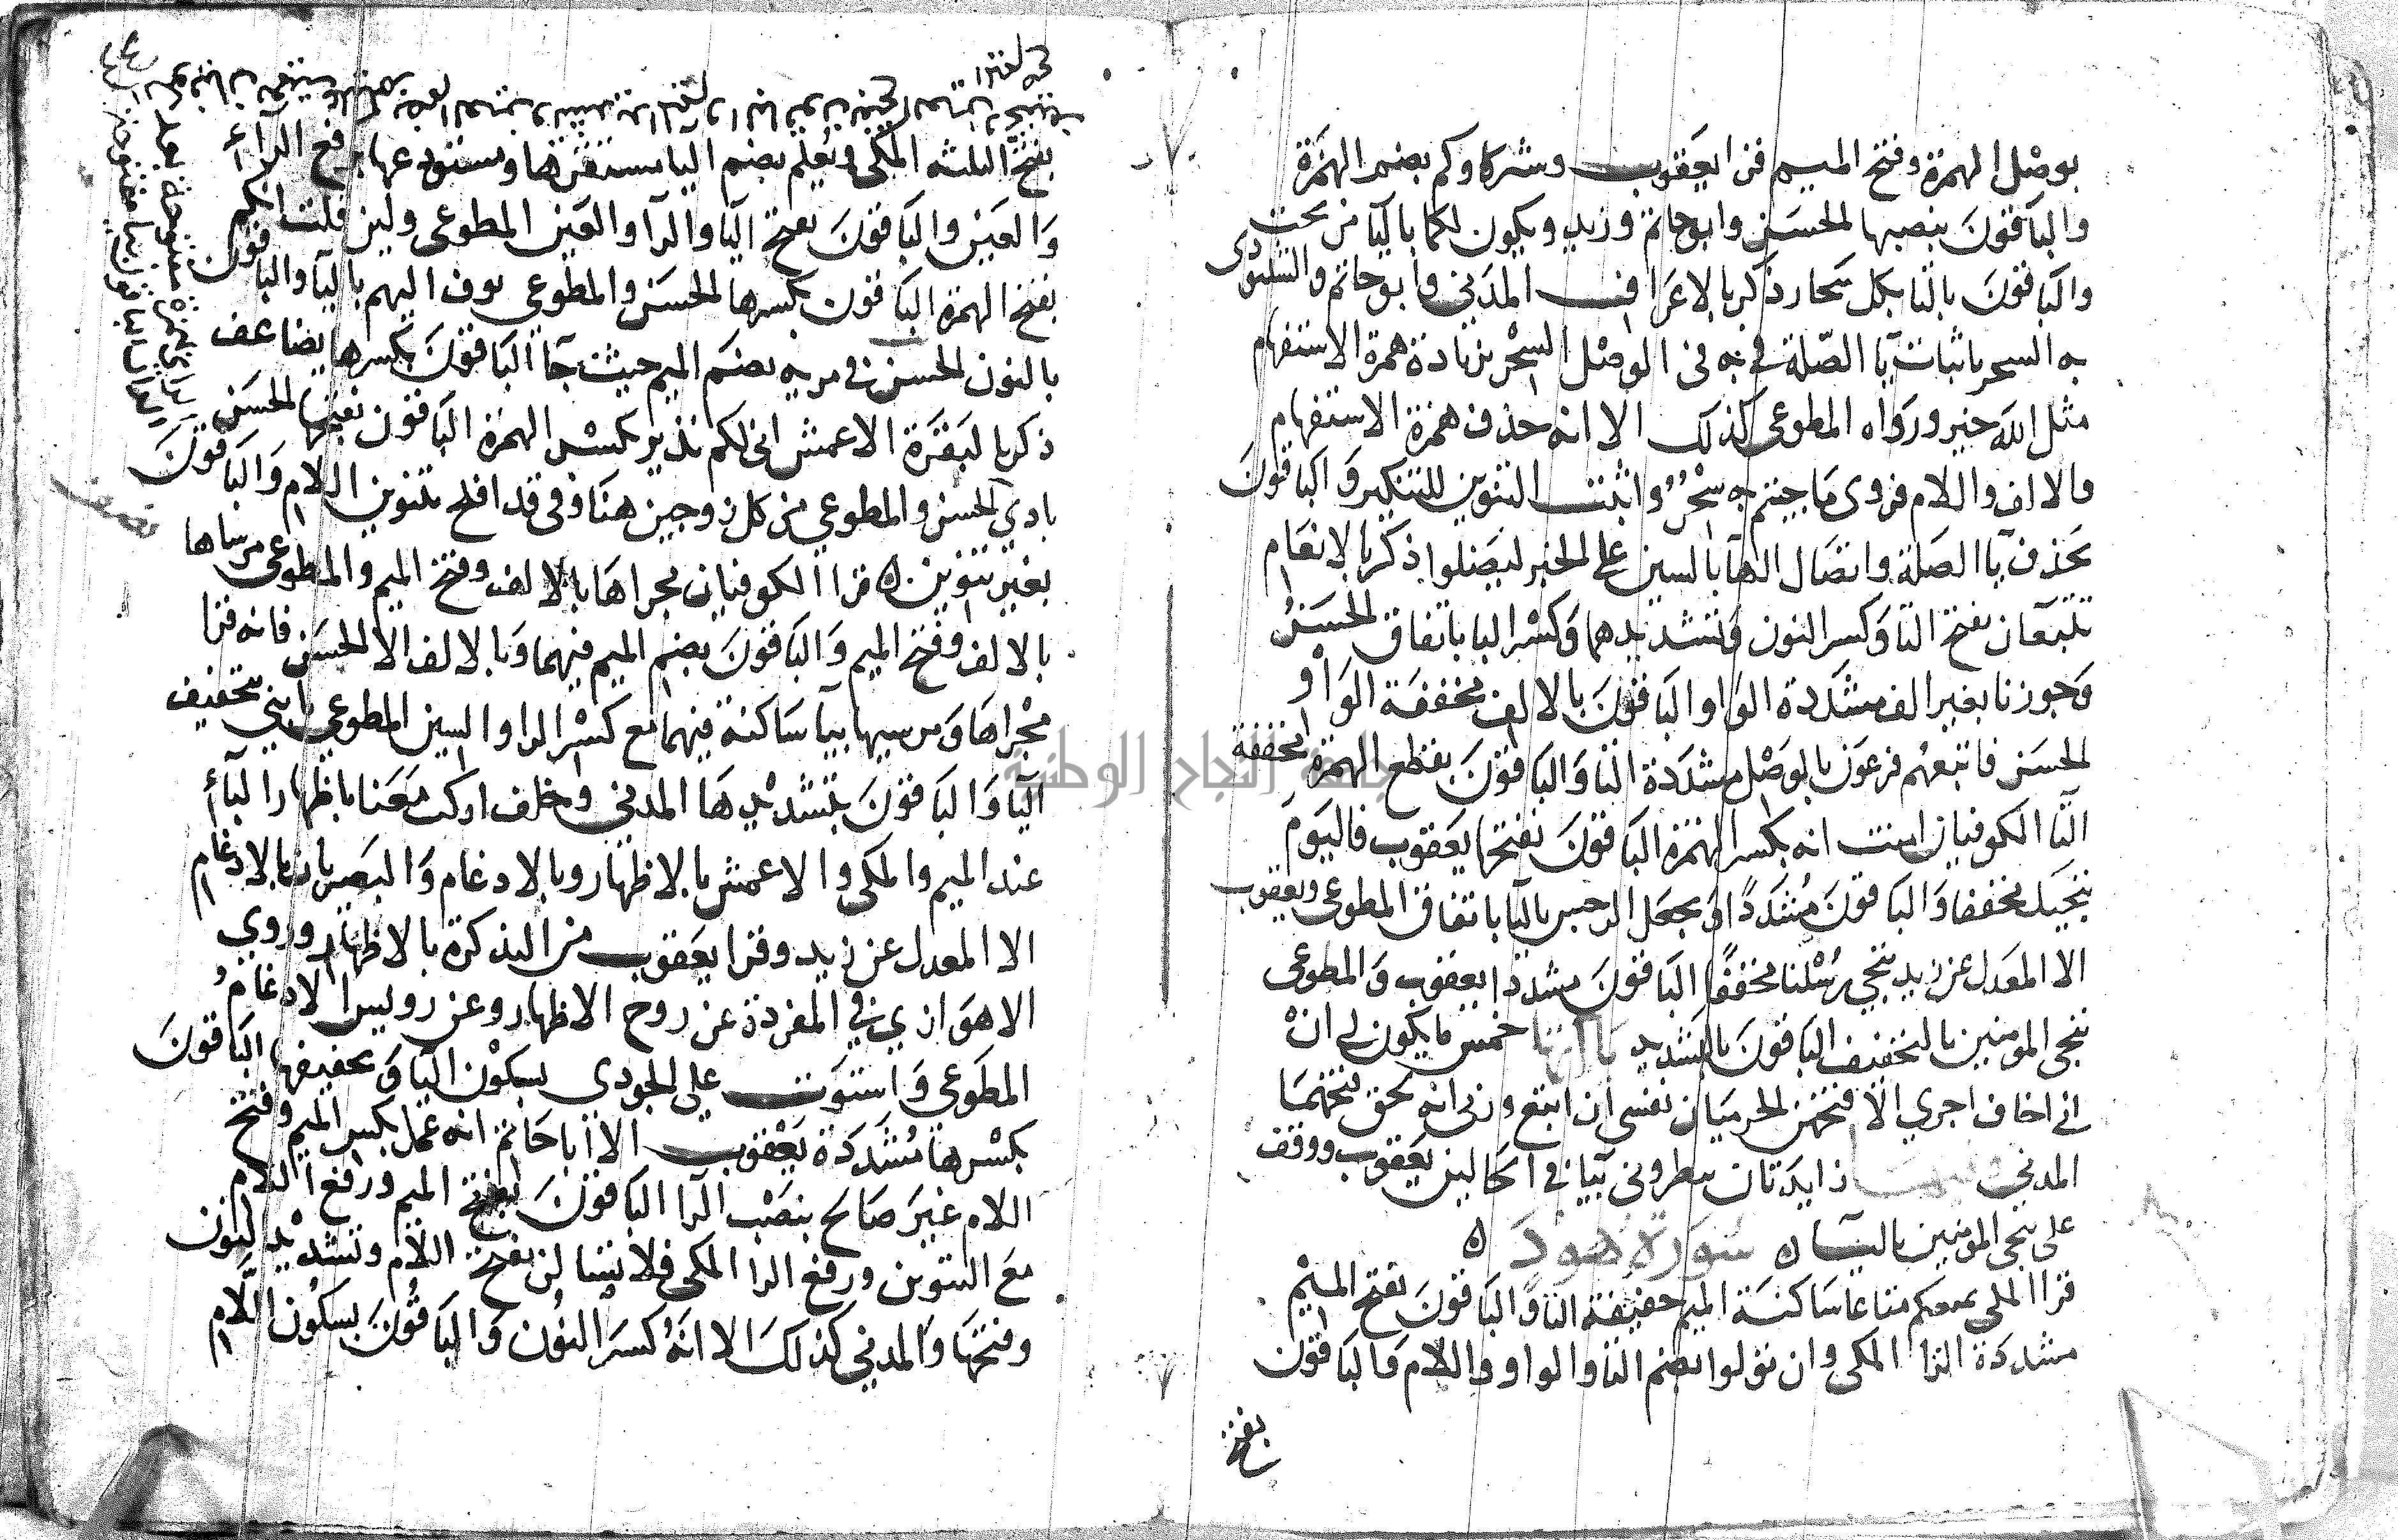 بوصل الهمزة وفتح الميم قرا يعقوب وشركاوكم بضم الهمزة
والباقون بنصبها الحسن وابو حاتم وزيد ويكون لكما باليا من تحت
والباقون بالتا بكل سحار ذكر بالاعراف المدني وابو حاتم والشنبوذى
به السحر باثبات يا الصلة في به في الوصل السحر بزيادة همزة الاستفهام
مثل الله خير ورواه المطوعى كذلك الا انه حذف همزة الاستفهام
والالف واللام فروى ما جيتم به سحر واثبت التنوين للتنكير والباقون
بحذف يا الصلة واتصال الها بالسين على الخبر ليضلوا ذكر بالانعام
تتبعان بفتح التا وكسر النون وتشديدهما وكسر البا باتفاق الحسن
وجوزنا بغير الف مشددة الواو الباقون بالالف مخففة الواو
الحسن فاتبعهم فرعون بالوصل مشددة التا والباقون بقطع الهمزة مخففة
التا الكوفيان امنت انه بكسر الهمزة الباقون بفتحها يعقوب فاليوم
ننجيك مخففا والباقون مشددا ويجعل الرجس باليا باتفاق المطوعى ويعقوب
الا المعدل عن زيد ننجي رسلنا مخففا الباقون مشددا يعقوب والمطوعى
ننجى المومنين بالتخفيف الباقون بالتشديد ياآتها خمس ما يكون لي ان
اني اخاف اجري الا فتحهن الحرميان نفسى ان اتبع وربى انه لحق فتحهما
المدني زايدتان تنظروني بيا في الحالين يعقوب ووقف
على ننجى المومنين باليا ه سورة هود ه
قرا المكى يمتعكم متاعا ساكنة الميم خفيفة التا والباقون بفتح الميم
مشددة التا المكى وان تولوا بضم التا والواو واللام والباقون
بفتح
بفتح الثلثه المكى ويعلم بضم اليا مستقرها ومستودعها برفع الرا
والعين والباقون بفتح اليا والرا والعين المطوعى ولين قلت انكم
بفتح الهمزة الباقون بكسرها الحسن والمطوعي يوف اليهم باليا والباقون
بالنون الحسن في مريه بضم الميم حيث جا الباقون بكسرها يضاعف
ذكر بالبقرة الاعمش اني لكم نذير بكسر الهمزة الباقون بفتحها الحسن
بادي الحسن والمطوعي من كل زوجين هنا وفي قد افلح بتنوين اللام والباقون
بغير تنوين ه قرا الكوفيان مجراها بالالف وفتح الميم والمطوعى مرساها
بالالف وفتح الميم والباقون بضم الميم فيهما وبالالف الا الحسن فانه قرا
مجراها ومرسيها بيا ساكنة فيهما مع كسر الرا والسين المطوعي يا بني بتخفيف
اليا والباقون بتشديدها المدني وخلف اركب معنا باظهار البا
عند الميم والمكى والاعمش بالاظهار وبالادغام والبصريان بالادغام
الا المعدل عن زيد وقرا يعقوب من التذكرة بالاظهار وروي
الاهوازي في المفردة عن روح الاظهار وعن رويس الادغام
المطوعي واستوت على الجودى بسكون اليا وتخفيفها الباقون
بكسرها مشددة يعقوب الا ابا حاتم انه عمل بكسر الميم وفتح
اللام غير صالح بنصب الرا الباقون بفتح الميم ورفع اللام
مع التنوين ورفع الرا المكى فلا تسالن بفتح اللام وتشديد النون
وفتحها والمدني كذلك الا انه كسر النون والباقون بسكون اللام
جامعة النجاح الوطنية